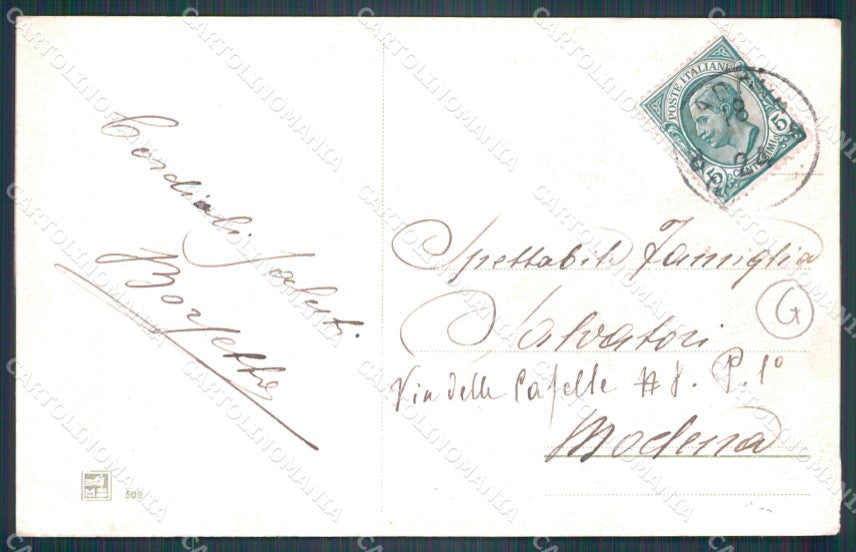 Cordiali saluti
Borsetto
POSTE ITALIANE
5 5
CENTESIMI
Spettabili Famiglia
Salvatori
G
Via delle Caselle # 8. P. 1°
Modena
508
CARTOLINOMANIA